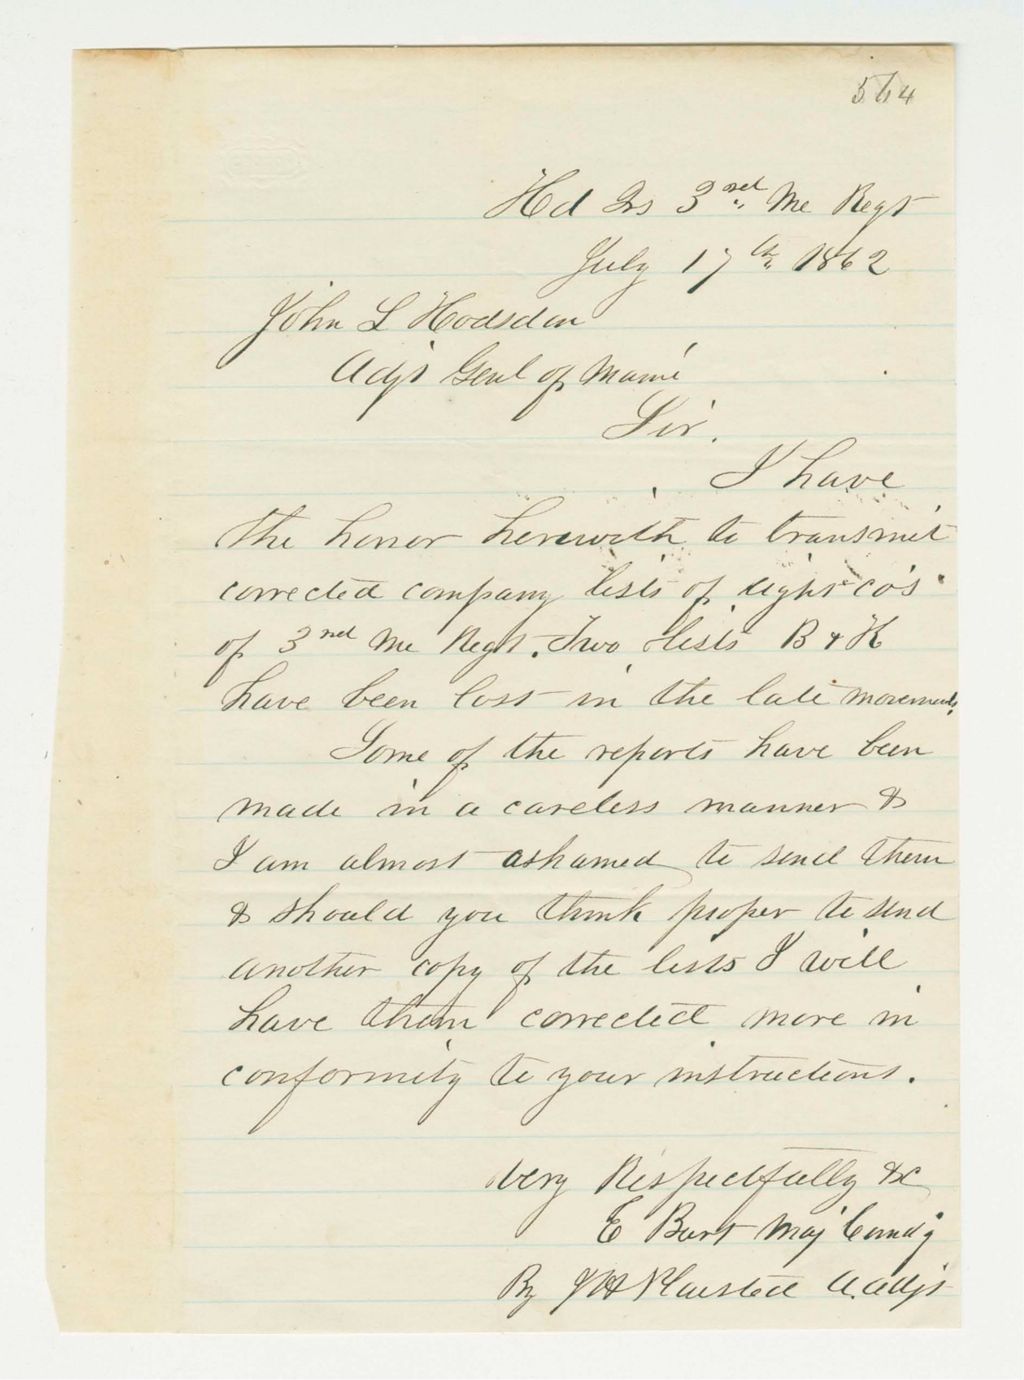 564
Hd Qrs 3rd Me Regt
July 17th 1862
John L Hodsdon
Adjt Genl of Maine
Sir.
I have
the honor herewith to transmit
corrected company lists of eight co's
of 3rd Me Regt. Two lists B & K
have been lost in the late movements.
Some of the reports have been
made in a careless manner &
I am almost ashamed to send them
& should you think proper to send
another copy of the lists I will
have them corrected more in
conformity to your instructions.
Very Respectfully &c
E Burt Maj Comd'g
By J H Plaisted A. Adjt